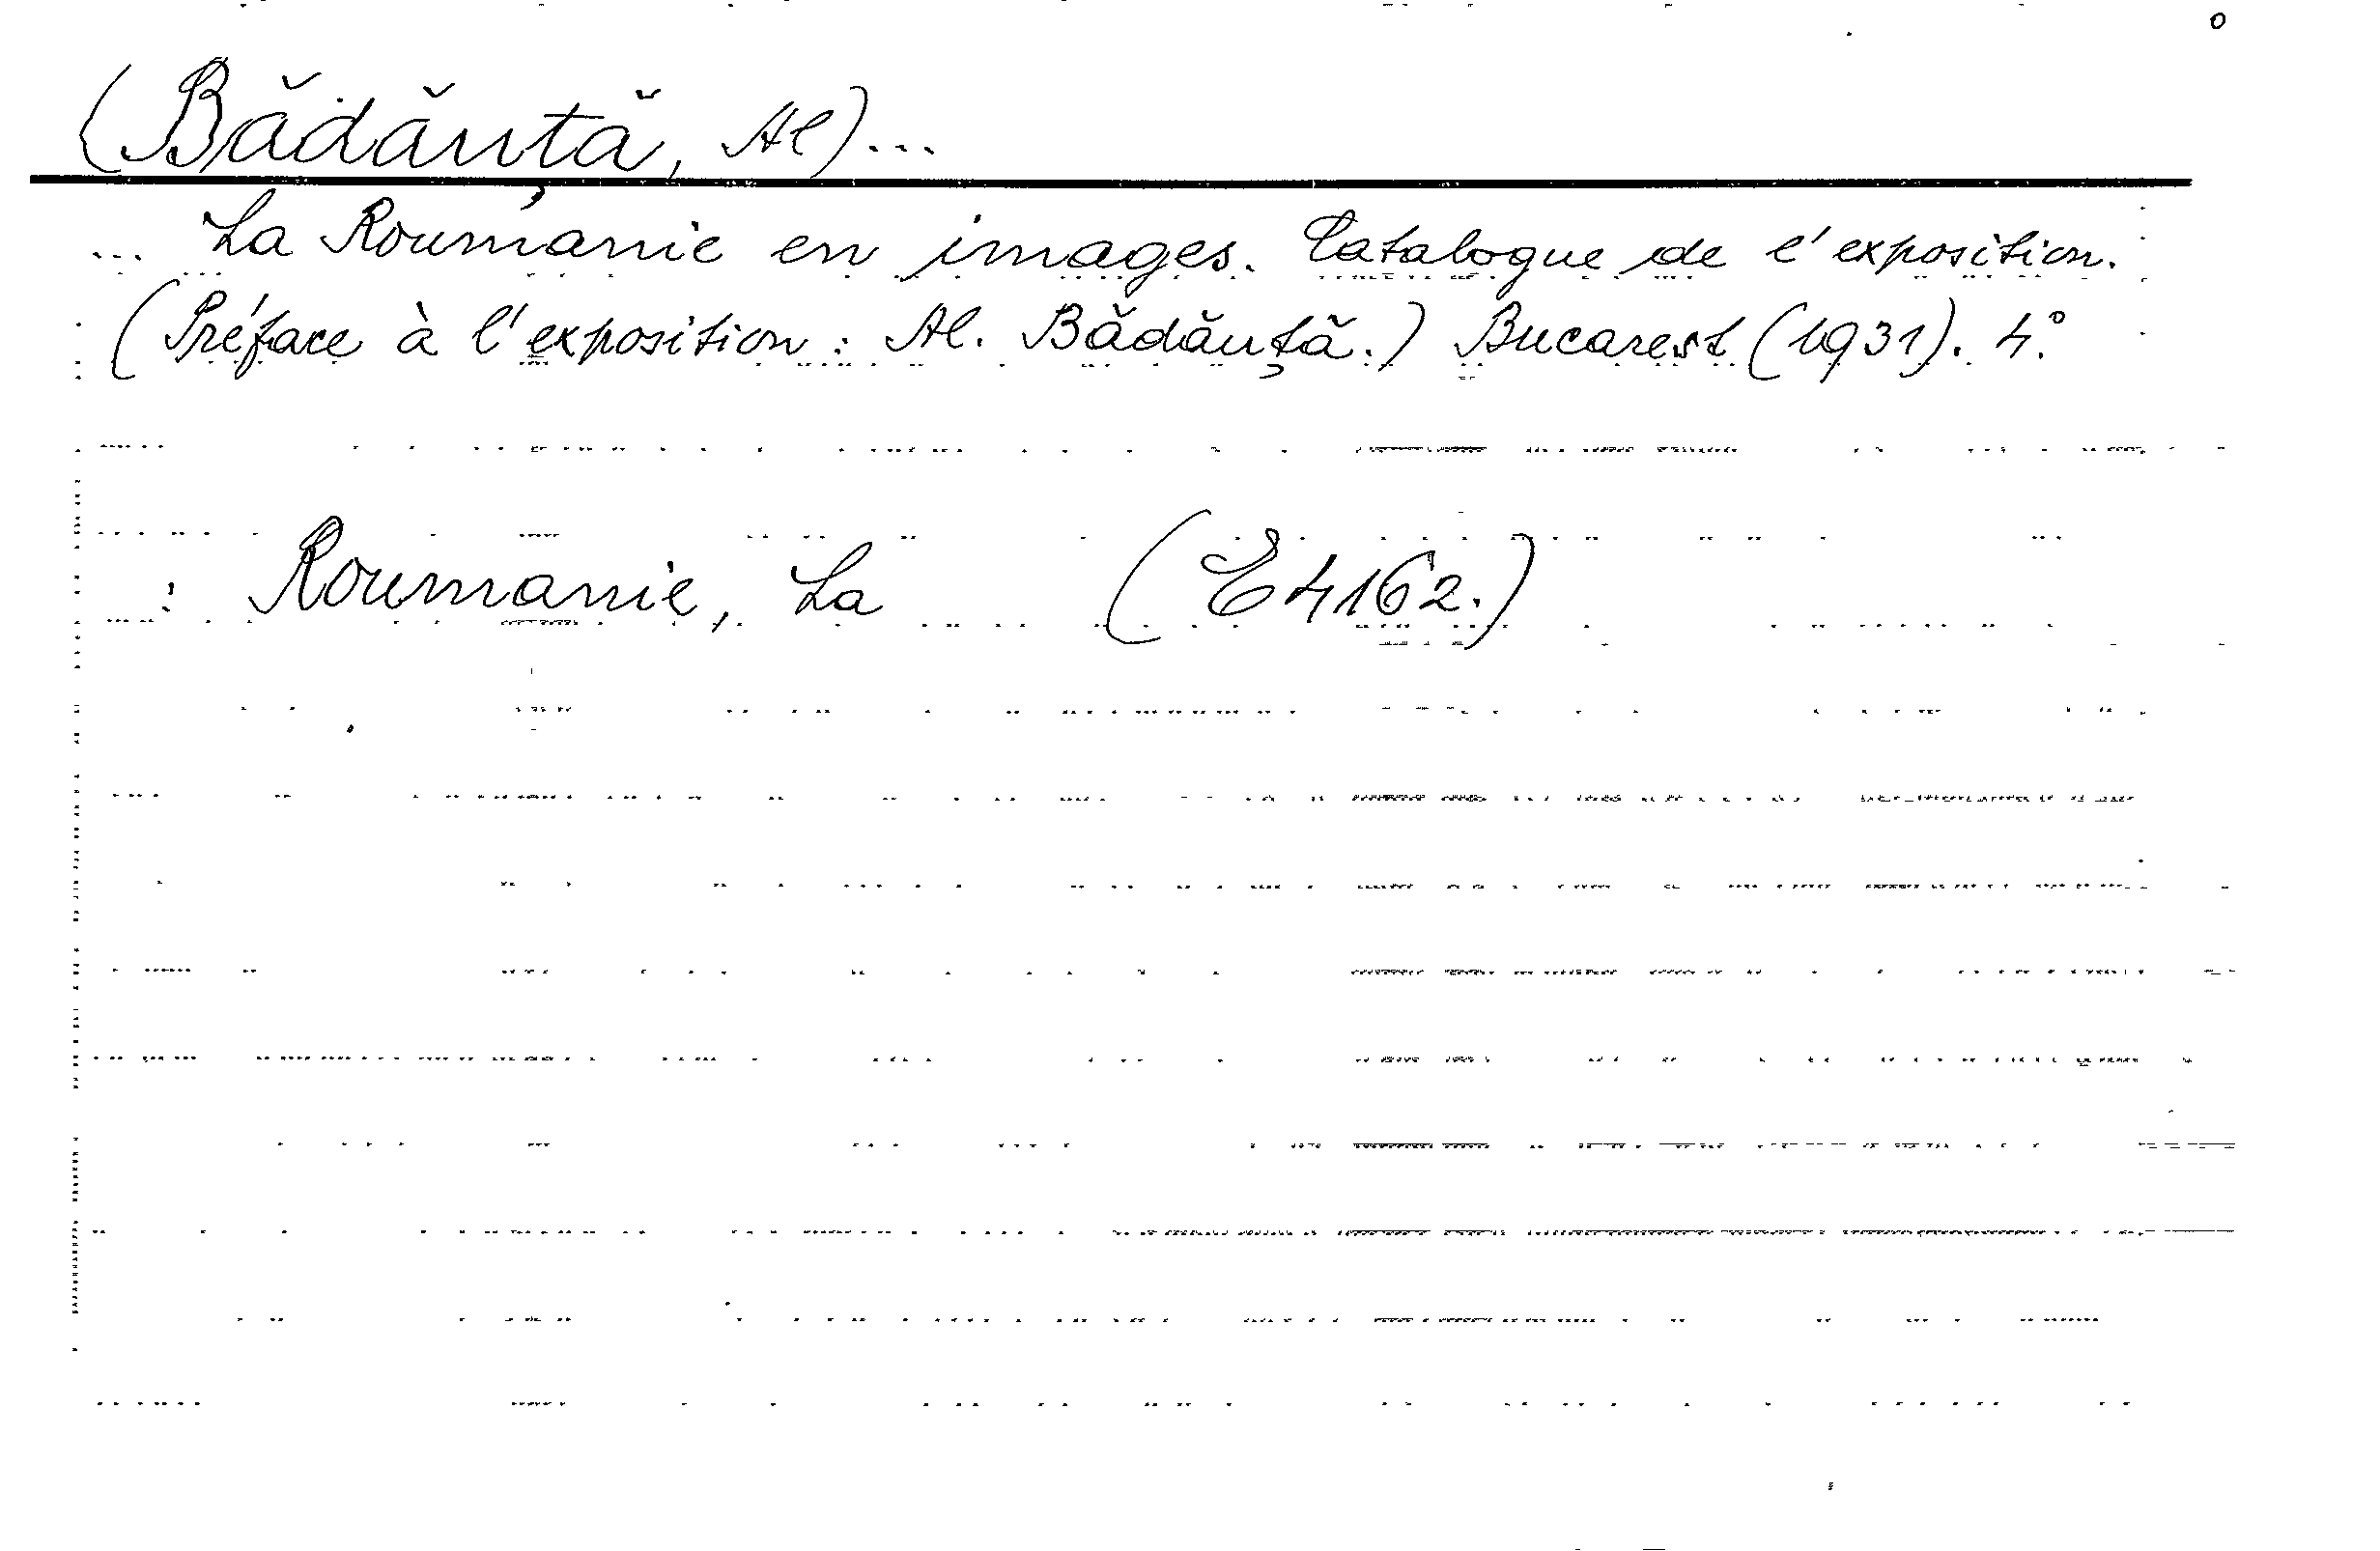 (Bădăuță, Al)...
... La Roumanie en images. Catalogue de l'exposition.
(Préface à l'exposition: Al. Bădăuță.) Bucarest (1931). 4.°
: Roumanie, La (E4162.)